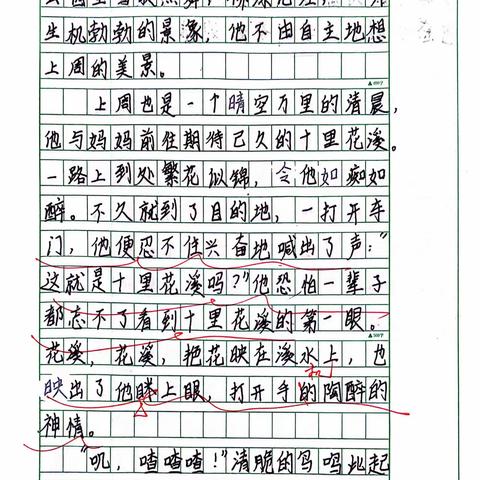 生机勃勃的景象，他不由自主地想
上周的美景。
上周也是一个晴空万里的清晨，
他与妈妈前往期待已久的十里花溪。
一路上到处繁花似锦，令他如痴如
醉。不久就到了目的地，一打开车
门，他便忍不住兴奋地喊出了声："
这就是十里花溪吗？"他恐怕一辈子
都忘不了看到十里花溪的第一眼。
花溪，花溪，艳花映在溪水上，也
映出了他眯上眼，打开手的陶醉的
神情。
"叽，喳喳喳！"清脆的鸟鸣此起